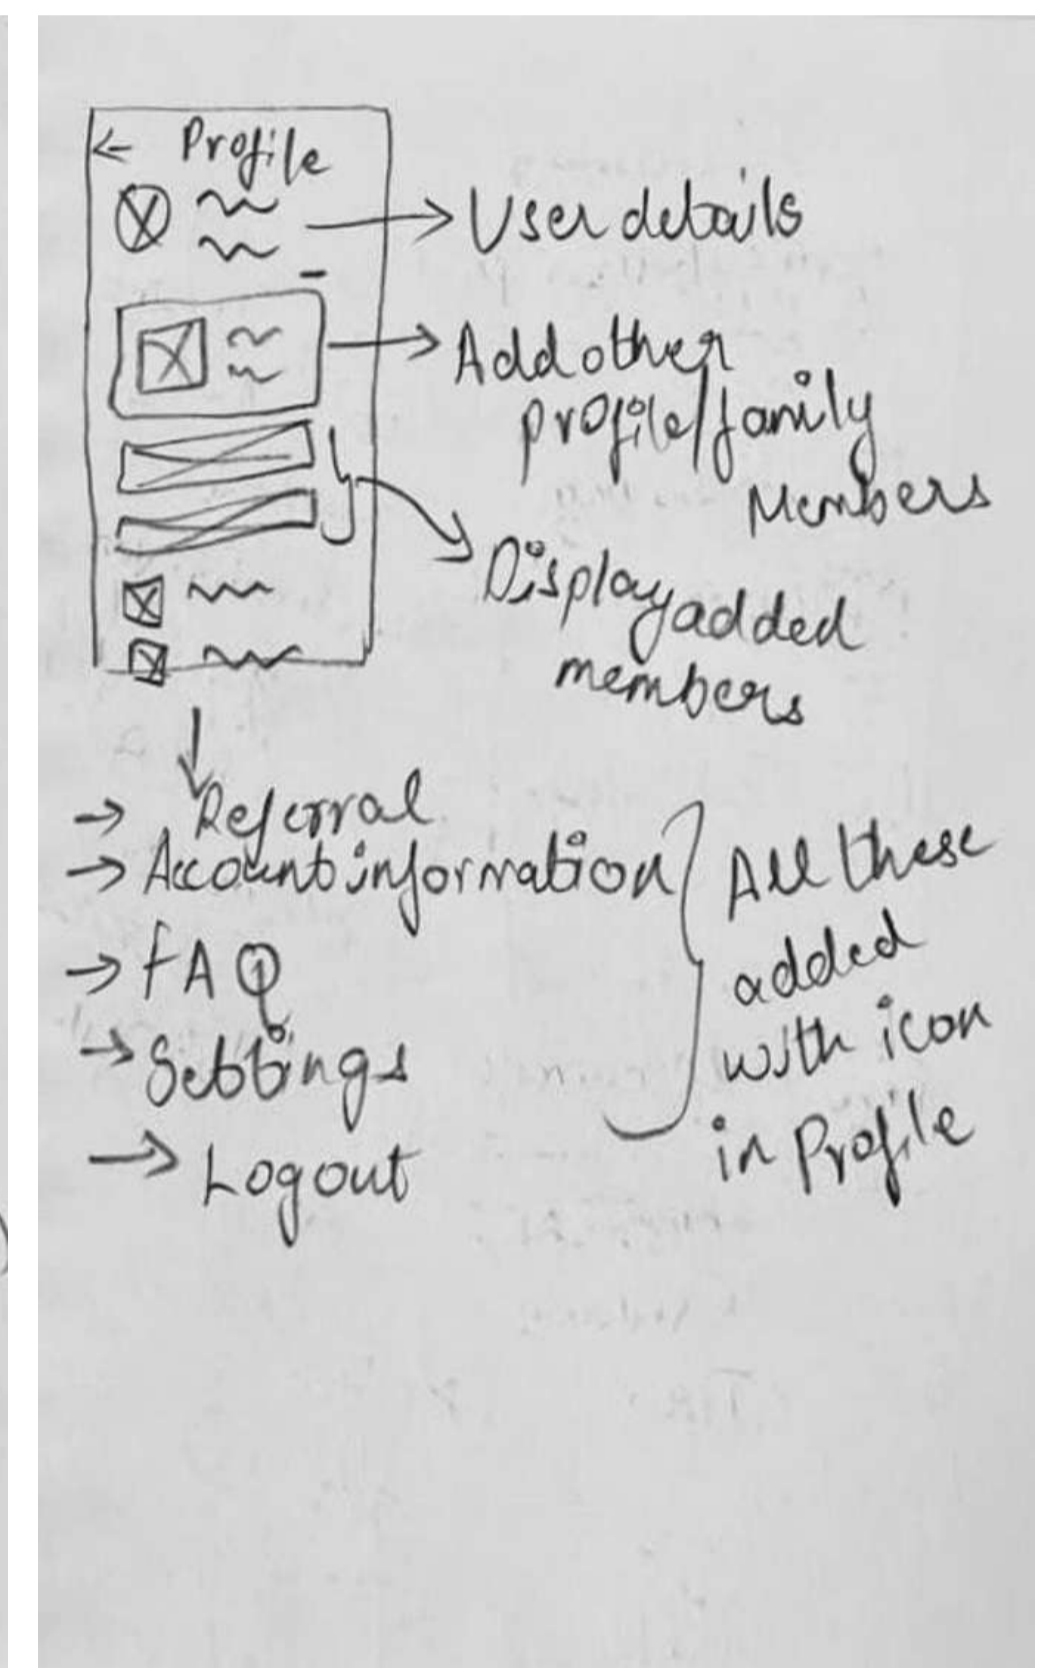 ← Profile
→ User details
→ Add other
profile/family
Members
→ Display added
members
→ Referral
→ Account information
→ FAQ
→ Settings
→ Logout
All these
added
with icon
in Profile